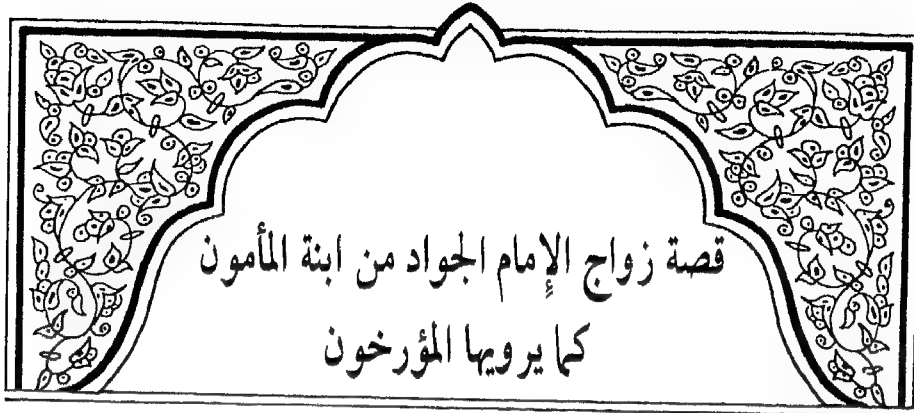 قصة زواج الإِمام الجواد من ابنة المأمون
كما يرويها المؤرخون